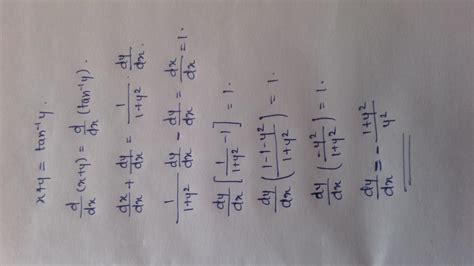 x+y = tan⁻¹y.
d/dx (x+y) = d/dx (tan⁻¹y).
dx/dx + dy/dx = 1/(1+y²) · dy/dx.
1/(1+y²) dy/dx - dy/dx = dx/dx = 1.
dy/dx [1/(1+y²) - 1] = 1.
dy/dx ((1-1-y²)/(1+y²)) = 1.
dy/dx (-y²/(1+y²)) = 1.
dy/dx = - (1+y²)/y²